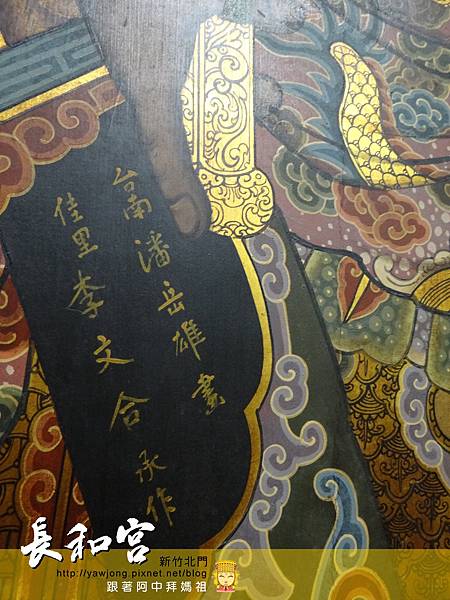 台南潘岳雄畫
佳里李文合承作
長和宮
新竹北門
http://yawjong.pixnet.net/blog
跟著阿中拜媽祖